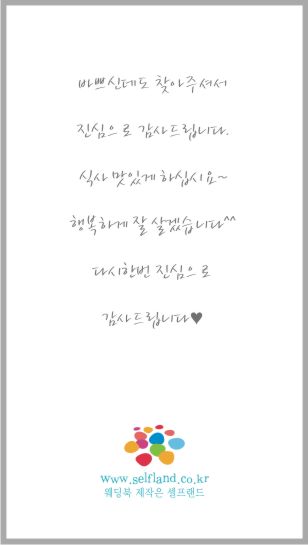 바쁘신데도 찾아주셔서
진심으로 감사드립니다.
식사 맛있게 하십시요~
행복하게 잘 살겠습니다^^
다시한번 진심으로
감사드립니다♥
www.selfland.co.kr
웨딩북 제작은 셀프랜드